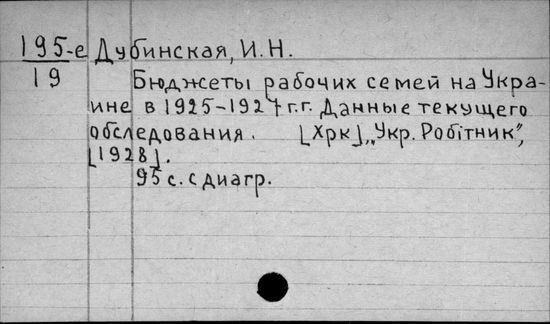 195-е Дубинская, И. Н.
19
Бюджеты рабочих семей на Укра-
ине в 1925-1927 г.г. Данные текущего
обследования. [Хрк], „Укр. Робітник",
[1928].
95 с. с диагр.